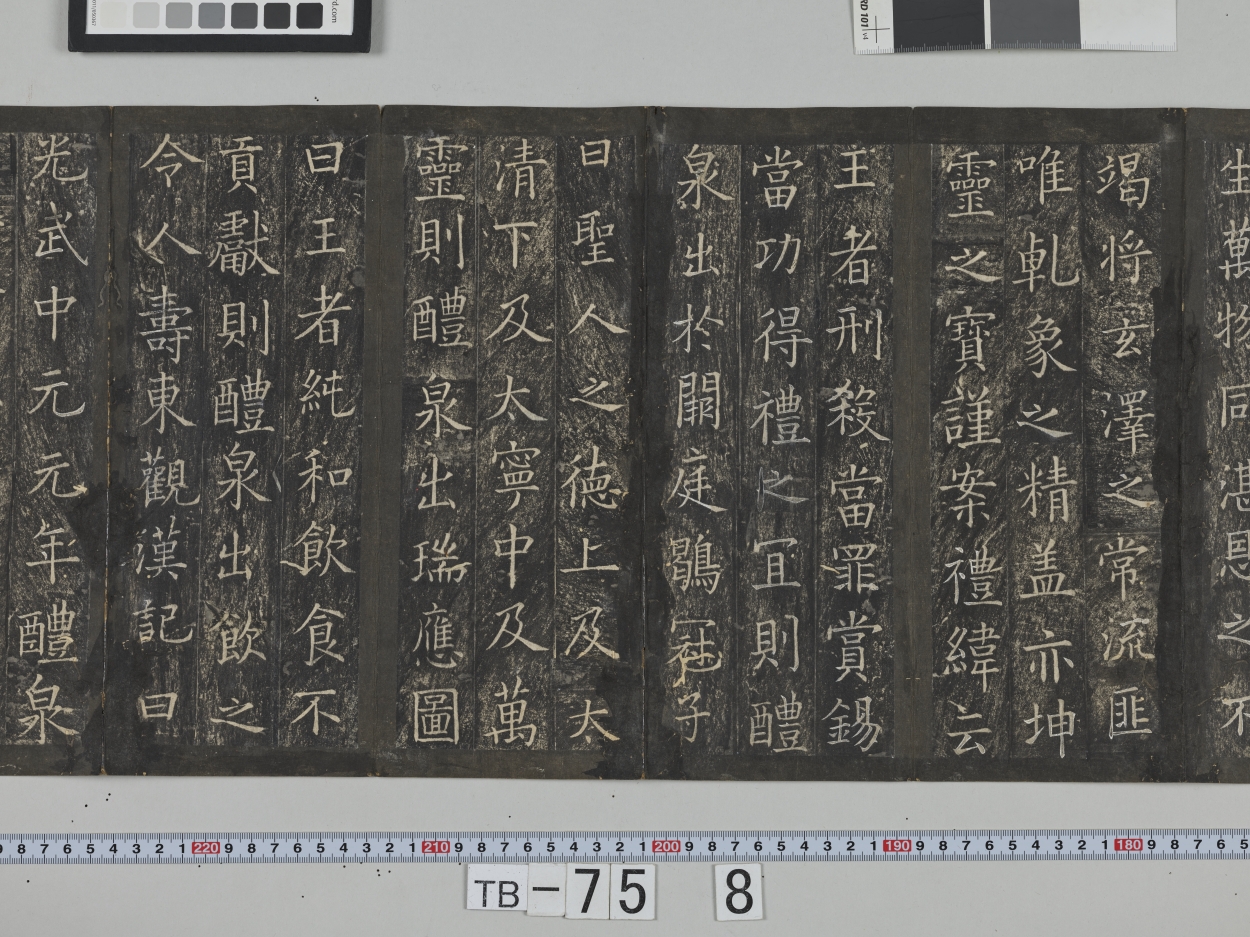 生萬物同湛恩之不
竭将玄澤之常流匪
唯乹象之精盖亦坤
靈之寶謹案禮緯云
王者刑殺當罪賞錫
當功得禮之宜則醴
泉出於闕庭鶡冠子
曰聖人之德上及太
清下及太寧中及萬
靈則醴泉出瑞應圖
曰王者純和飲食不
貢獻則醴泉出飲之
令人壽東觀漢記曰
光武中元元年醴泉
TB-75 8